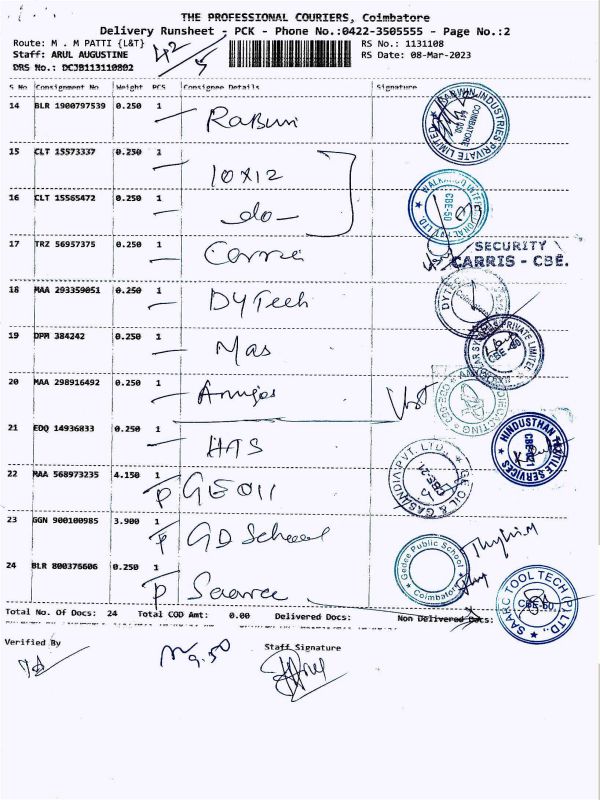 THE PROFESSIONAL COURIERS, Coimbatore
Delivery Runsheet - PCK - Phone No.:0422-3505555 - Page No.:2
Route: M . M PATTI {L&T}
RS No.: 1131108
Staff: ARUL AUGUSTINE
RS Date: 08-Mar-2023
DRS No.: DCJB113110802
42
5
S No Consignment No Weight PCS Consignee Details Signature
14 BLR 1900797539 0.250 1
15 CLT 15573337 0.250 1 10x12
16 CLT 15565472 0.250 1 -do-
17 TRZ 56957375 0.250 1
SECURITY
CARRIS - CBE.
18 MAA 293359051 0.250 1 DYTech
19 DPM 384242 0.250 1 Mas
20 MAA 298916492 0.250 1
21 EDQ 14936833 0.250 1 HTS
HINDUSTHAN TEXTILE SERVICES
22 MAA 568973235 4.150 1 P GE Oil
GE OIL & GAS INDIA PVT. LTD.
23 GGN 900100985 3.900 1 P GD School
Gedee Public School
Coimbatore
24 BLR 800376606 0.250 1 P
SAARC TOOL TECH (P) LTD.,
CBE-60
Total No. Of Docs: 24 Total COD Amt: 0.00 Delivered Docs: Non Delivered Docs:
Verified By
9.50
Staff Signature